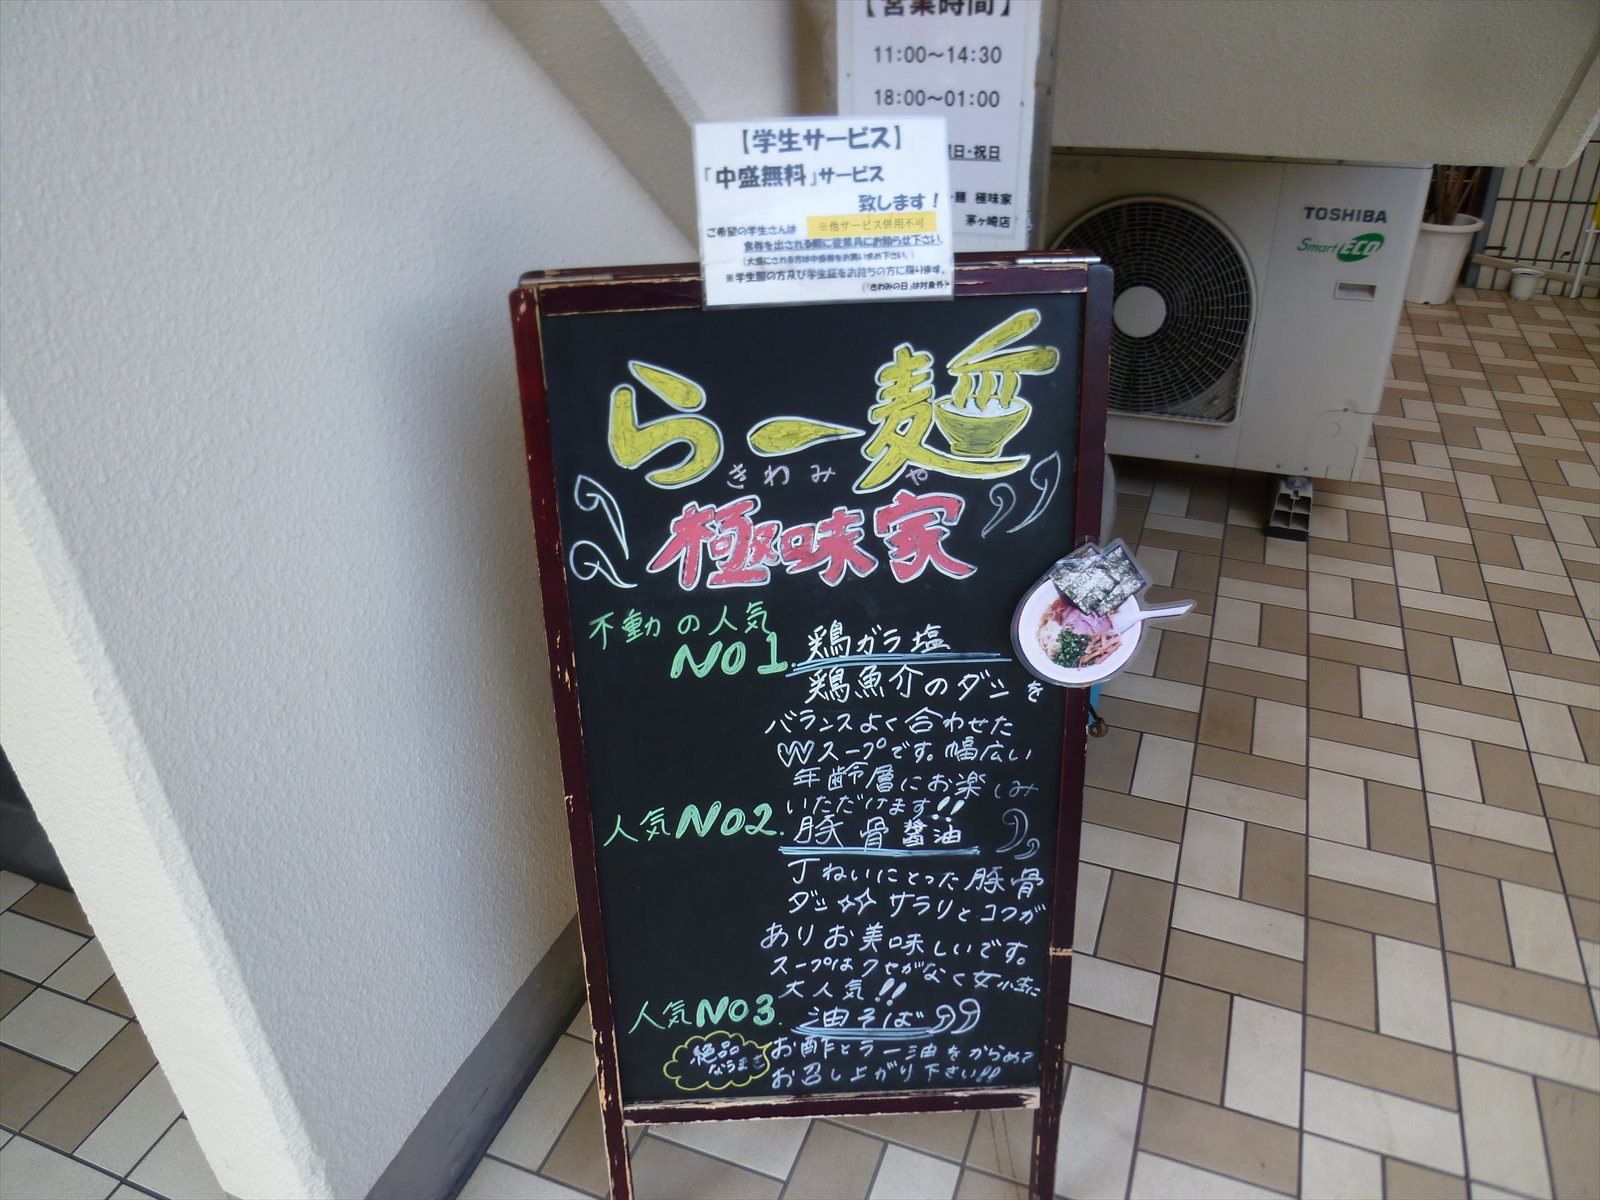 【営業時間】
11:00～14:30
18:00～01:00
日・祝日
麺 極味家
茅ヶ崎店
【学生サービス】
「中盛無料」サービス
致します!
※他サービス併用不可
ご希望の学生さんは
食券を出される際に従業員にお知らせ下さい。
(大盛にされる方は中盛券をお買い求め下さい。)
※学生服の方及び学生証をお持ちの方に限ります。
(「きわみの日」は対象外)
TOSHIBA
Smart ECO
らー麺
きわみや
極味家
不動の人気
NO1. 鶏ガラ塩
鶏魚介のダシを
バランスよく合わせた
Wスープです。幅広い
年齢層にお楽しみ
いただけます!!
人気NO2. 豚骨醤油
丁ねいにとった豚骨
ダシ サラリとコクが
ありお美味しいです。
スープはクセがなく女性に
大人気!!
人気NO3. 油そば
絶品
なうまさ
お酢とラー油をからめて
お召し上がり下さい!!